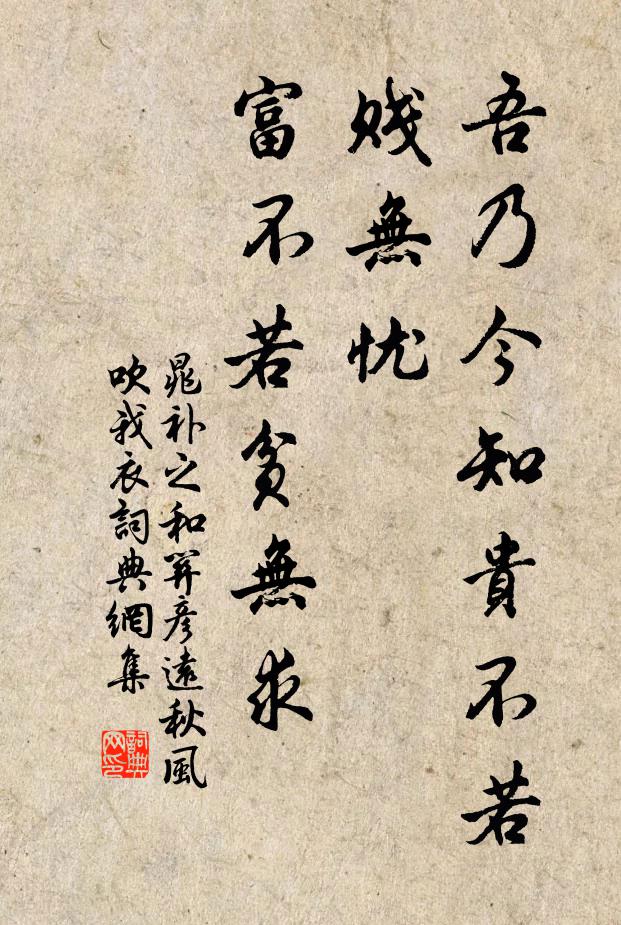 吾乃今知貴不若
賤無忧
富不若貧無求
晁补之和關彦遠秋風
吹我衣詞典網集
詞典
网印